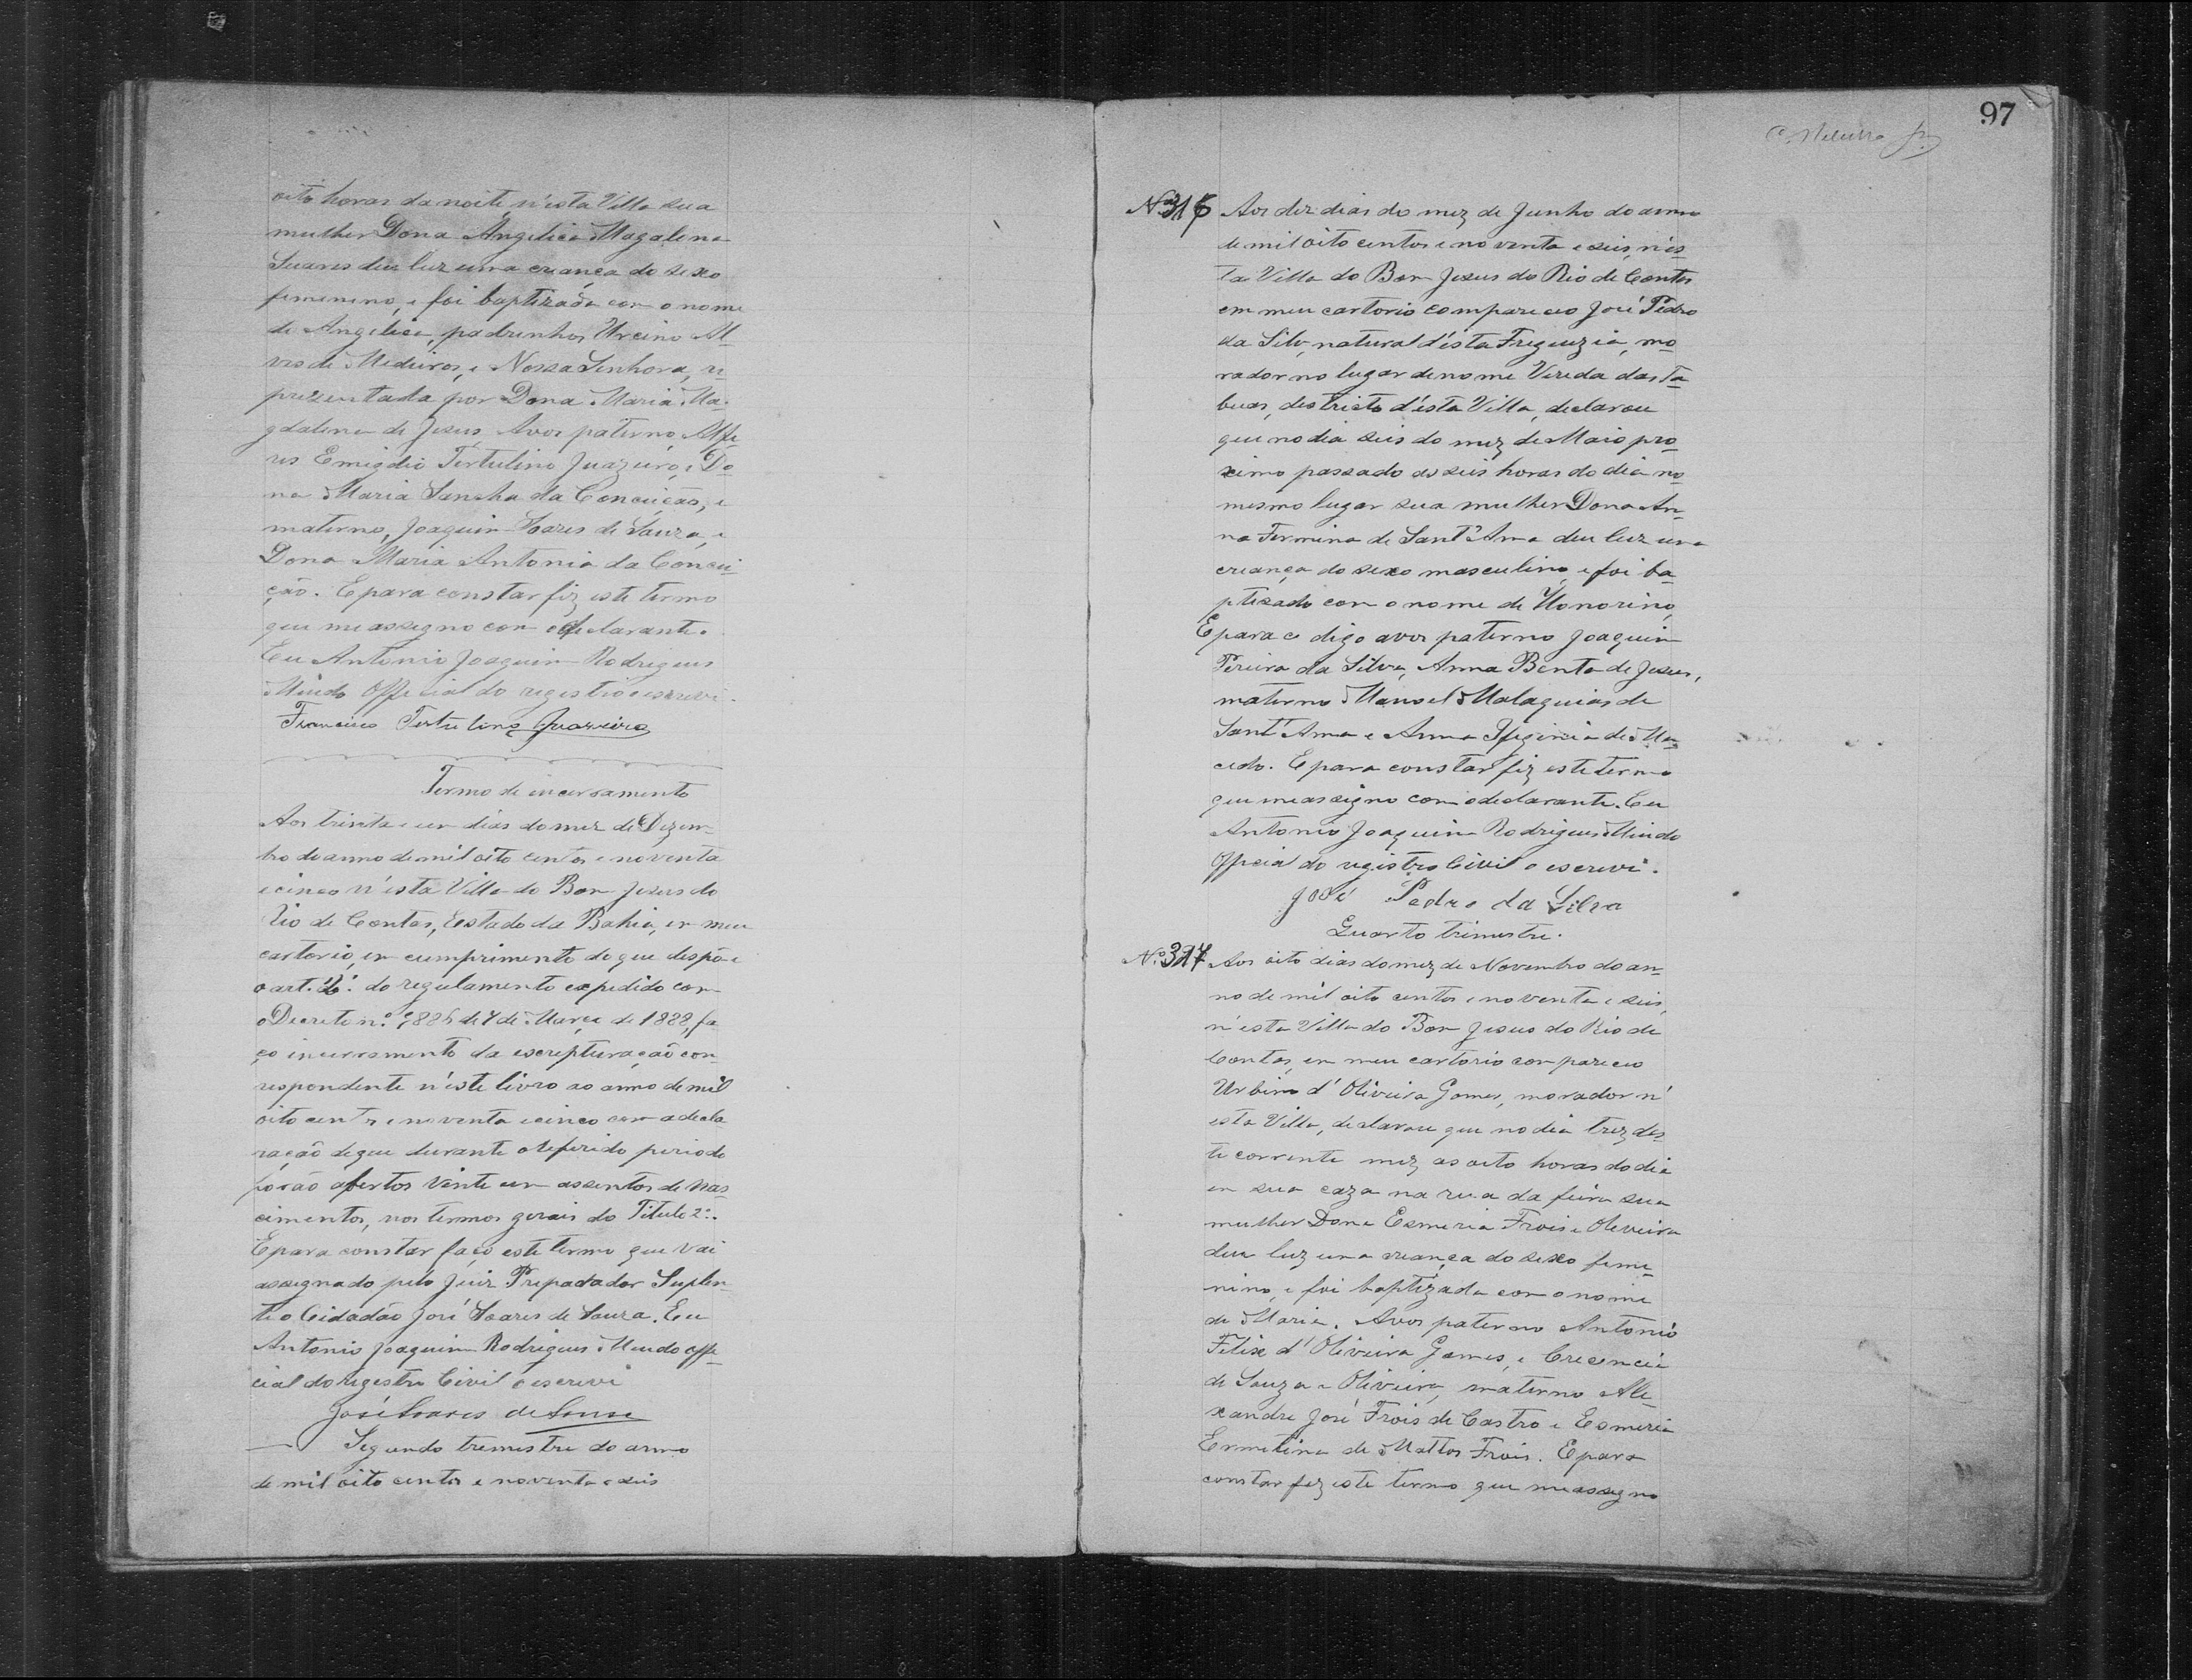 oito horas da noite n'esta Villa sua
mulher Dona Angelica Magalena
Suares deu luz uma criança do sexo
femenino, e foi baptizada com o nome
de Angelica, padrinhos Urcino Al-
ves de Medeiros, e Nossa Senhora, re-
prezentada por Dona Maria Ma-
gdalena de Jesus, Avos paterno, Alfe-
res Emigdio Tertulino Juazeiro, e Do-
na Maria Sancha da Conceição, e
materno, Joaquim Soares de Souza, e
Dona Maria Antonia da Concei-
ção. E para constar fiz este termo
que me assegno com o declarante.
Eu Antonio Joaquim Rodrigues
Official do registro o escrevi.
Francisco Tertulino Juazeiro
Termo de encerramento
Aos trinta e um dias do mez de Dezem-
bro do anno de mil oito centos e noventa
e cinco n'esta Villa do Bom Jesus do
Rio de Contas, Estado da Bahia, em meu
cartorio, em cumprimento do que despõe
o art. do regulamento expedido com
o Decreto n.º 9886 de 7 de Março de 1888, fa-
ço incerramento da escripturação con-
respondente n'este livro ao anno de mil
oito centos e noventa e cinco com a decla-
ração de que durante o referido periodo
forão abertos vinte um assentos de nas-
cimentos, nos termos gerais do Titulo 2º.
E para constar faço este termo que vai
assegnado pelo Juiz Preparador Suplen-
te o Cidadão José Soares de Souza. Eu
Antonio Joaquim Rodrigues offi-
cial do regestro Civil o escrevi
José Soares de Sousa
Segundo tremestre do anno
de mil oito centos e noventa e seis
97
Nº 316 Aos dez dias do mez de Junho do anno
de mil oito centos e noventa e seis, n'es-
ta Villa do Bom Jesus do Rio de Contas
em meu cartorio compareceo José Pedro
da Silv, natural d'esta Freguezia, mo-
rador no lugar de nome Vereda das Ta-
buas, destricto d'esta Villa, declarou
que no dia seis do mez de Maio pro-
ximo passado as seis horas do dia no
mesmo lugar sua mulher Dona An-
na Fermina de Sant'Anna deu luz uma
criança do sexo masculino, e foi ba-
ptesado com o nome de Honorino,
E para c digo avos paterno Joaquim
Pereira da Silva, Anna Benta de Jesus,
materno Manoel Malaquias de
Sant'Anna e Anna Ifiginia de Ma-
cedo. E para constar fiz este termo
que me assigno com o declarante. Eu
Antonio Joaquim Rodrigues
Officia do registro Civil o escrevi.
José Pedro da Silva
Quarto trimestre.
N.º 317 Aos oito dias do mez de Novembro do an-
no de mil oito centos e noventa e seis,
n'esta Villa do Bom Jesus do Rio de
Contas, em meu cartorio compareceo
Urbino d'Oliveira Gomes, morador n'
esta Villa, declarou que no dia trez des-
te corrente mez, as oito horas do dia
em sua caza na rua da feira sua
mulher Dona Esmeria Frois e Oleveira
deu luz uma criança do sexo feme-
nino, e foi baptizada com o nome
de Maria. Avos paterno Antonio
Felix d'Oliveira Gomes, e Crecencia
de Souza e Oliveira, materno Ale-
xandre José Frois de Castro e Esmeria
Ermelina de Mattos Frois. E para
constar fez este termo que me assegno